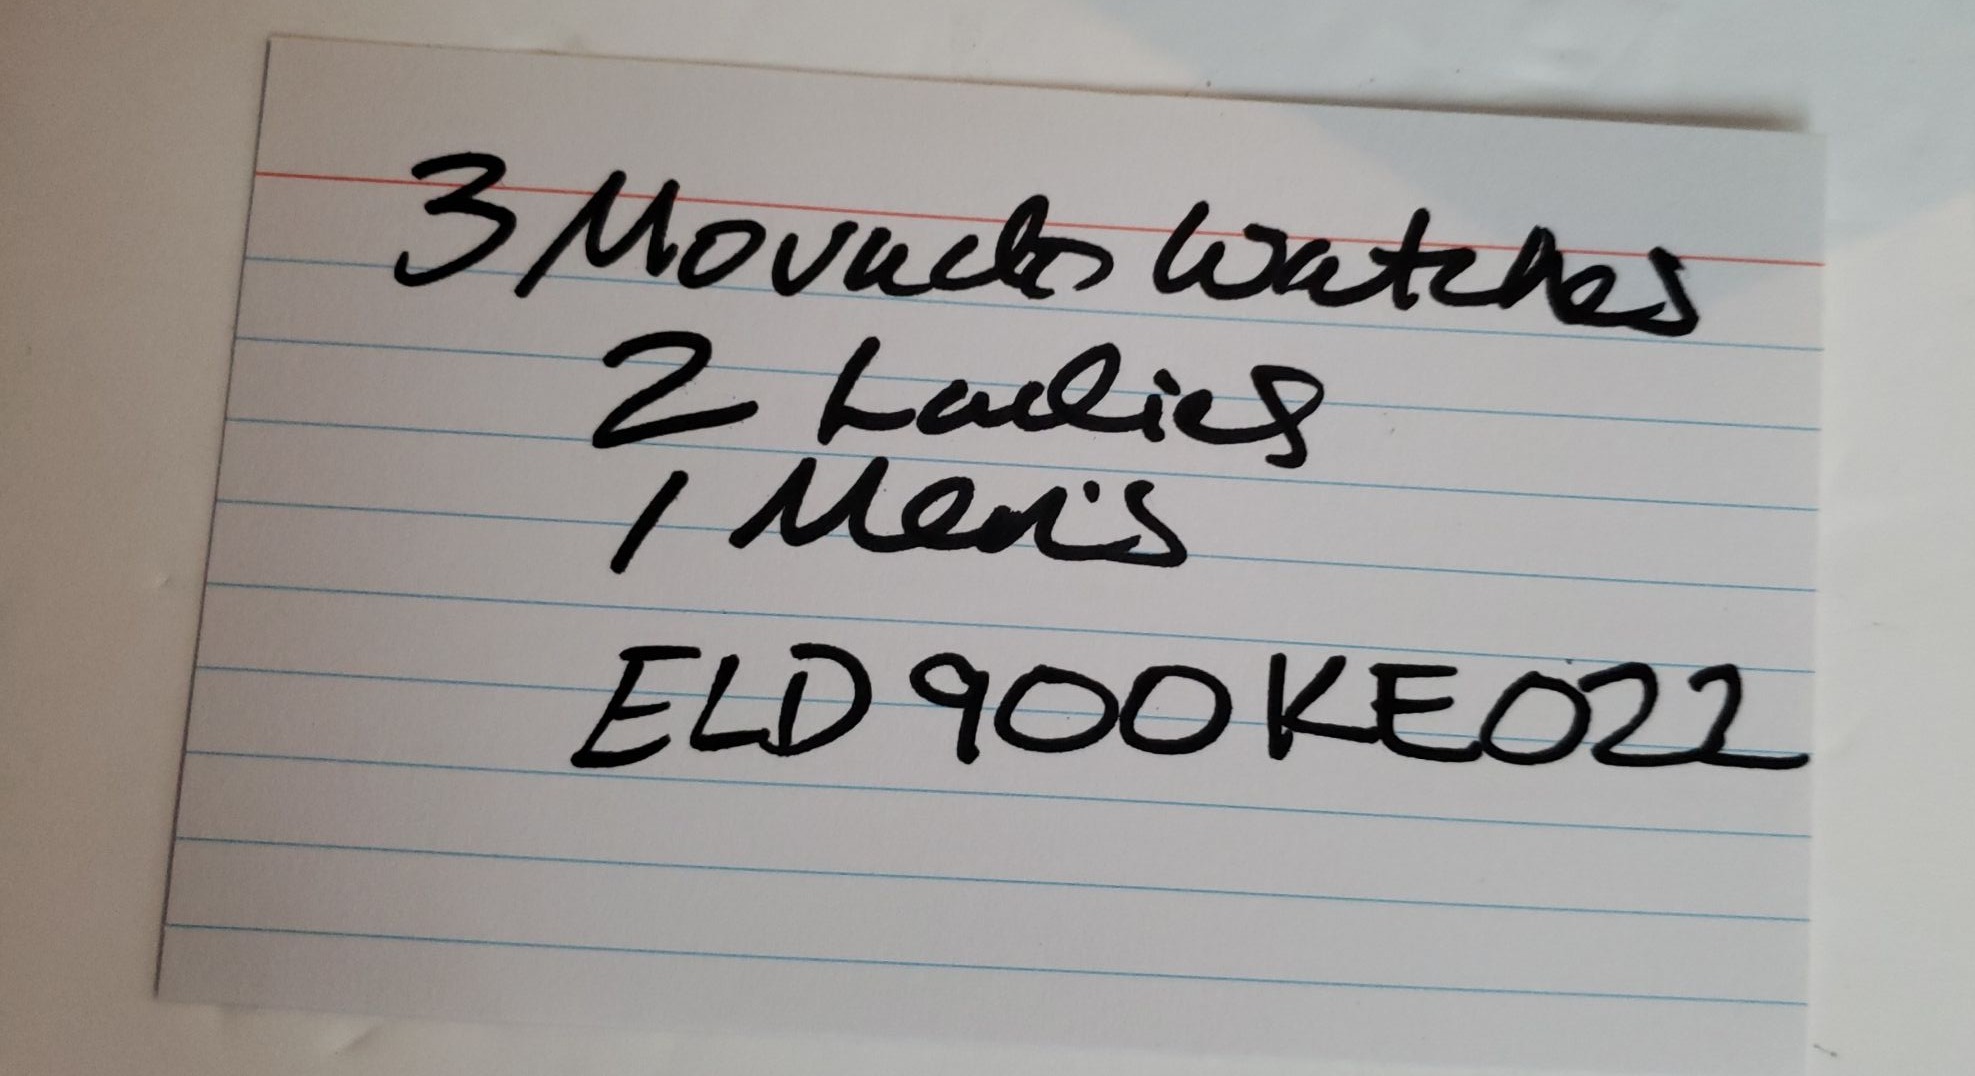 3 Movado Watches
2 Ladies
1 Men's
ELD900KE022